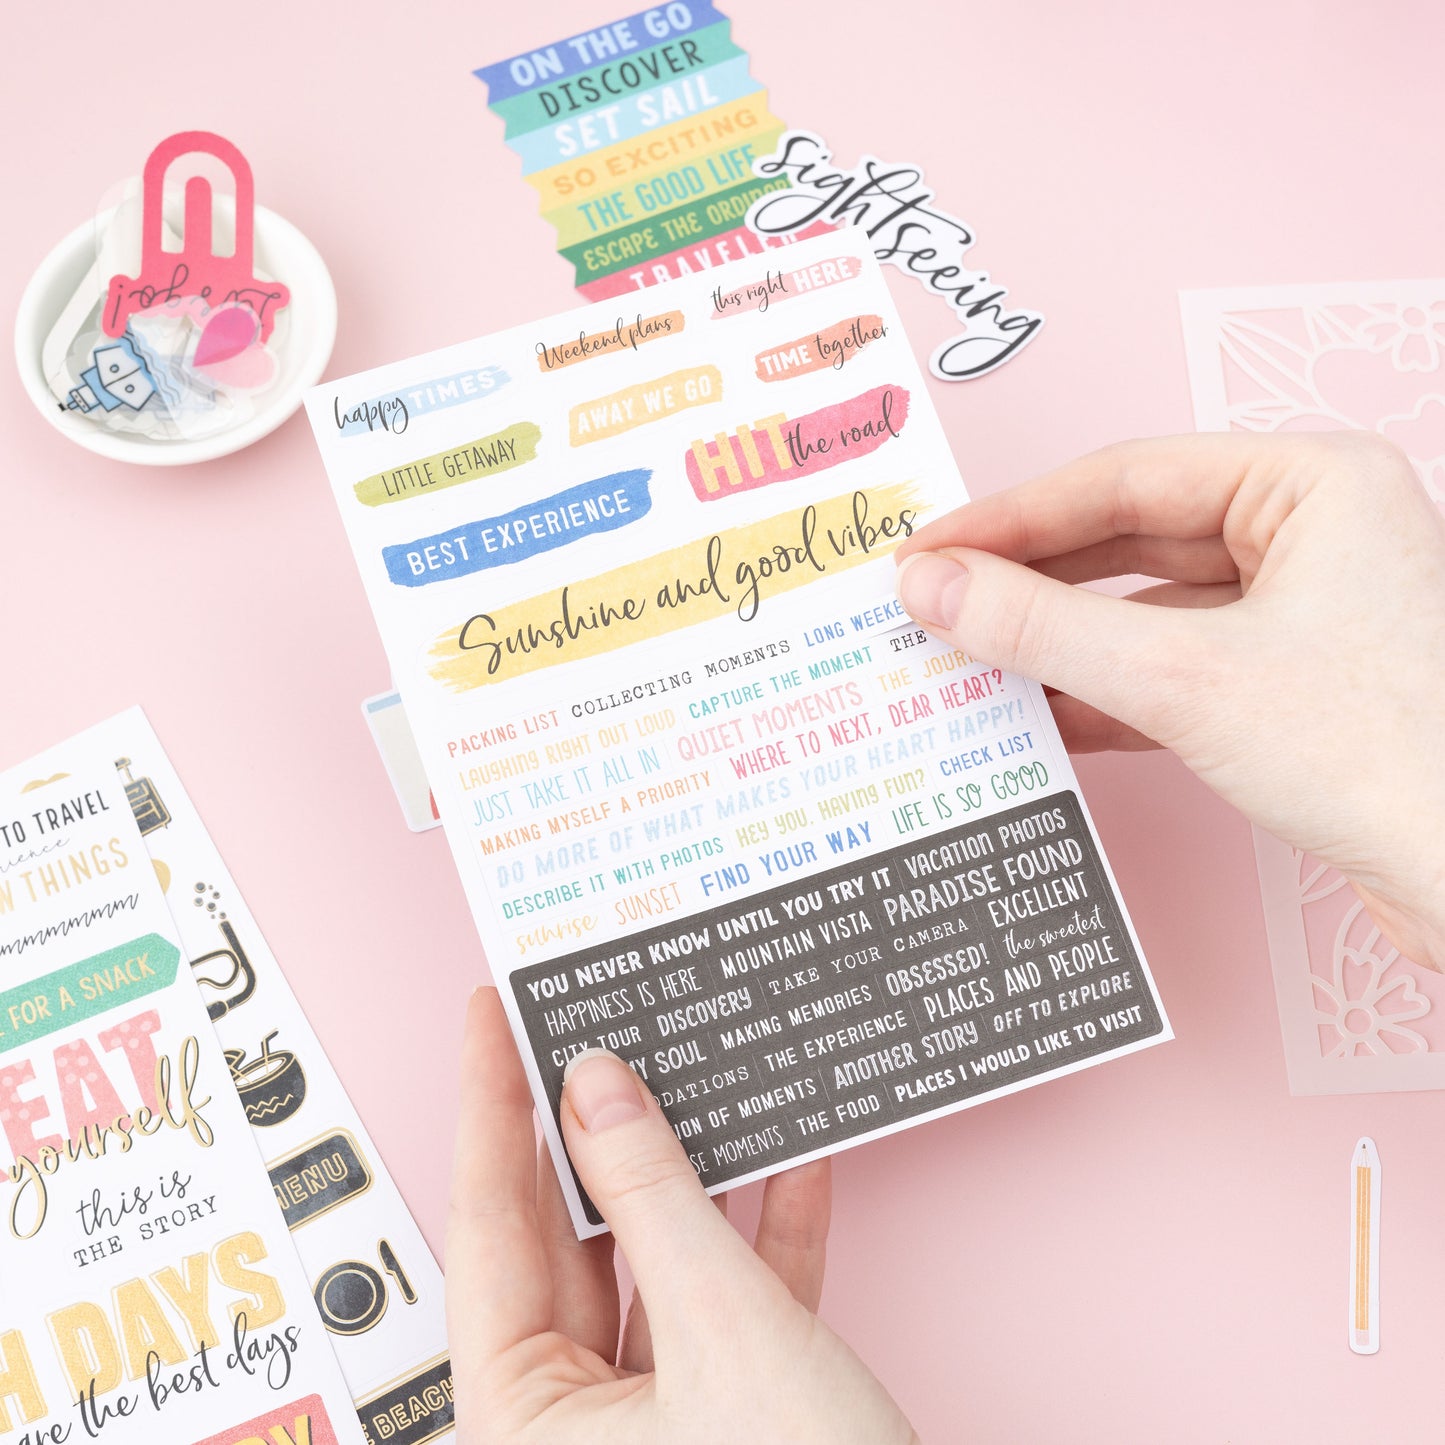 ON THE GO
DISCOVER
SET SAIL
SO EXCITING
THE GOOD LIFE
ESCAPE THE
TRAVELER
sightseeing
Let's go!
this right HERE
Weekend plans
happy TIMES
TIME together
AWAY WE GO
LITTLE GETAWAY
HIT the road
BEST EXPERIENCE
Sunshine and good vibes
LONG
COLLECTING MOMENTS
PACKING LIST
THE
CAPTURE THE MOMENT
LAUGHING RIGHT OUT LOUD
THE
QUIET MOMENTS
JUST TAKE IT ALL IN
WHERE TO NEXT, DEAR HEART?
MAKING MYSELF A PRIORITY
DO MORE OF WHAT MAKES YOUR HEART HAPPY!
CHECK LIST
HEY YOU, HAVING FUN?
DESCRIBE IT WITH PHOTOS
LIFE IS SO GOOD
FIND YOUR WAY
SUNSET
sunrise
VACATION PHOTOS
YOU NEVER KNOW UNTIL YOU TRY IT
PARADISE FOUND
MOUNTAIN VISTA
HAPPINESS IS HERE
EXCELLENT
TAKE YOUR CAMERA
DISCOVERY
CITY TOUR
the sweetest
OBSESSED!
MAKING MEMORIES
MY SOUL
PLACES AND PEOPLE
THE EXPERIENCE
OFF TO EXPLORE
ANOTHER STORY
OF MOMENTS
PLACES I WOULD LIKE TO VISIT
THE FOOD
MOMENTS
TO TRAVEL
THINGS
FOR A SNACK
yourself
this is
THE STORY
MENU
DAYS
are the best days
BEACH